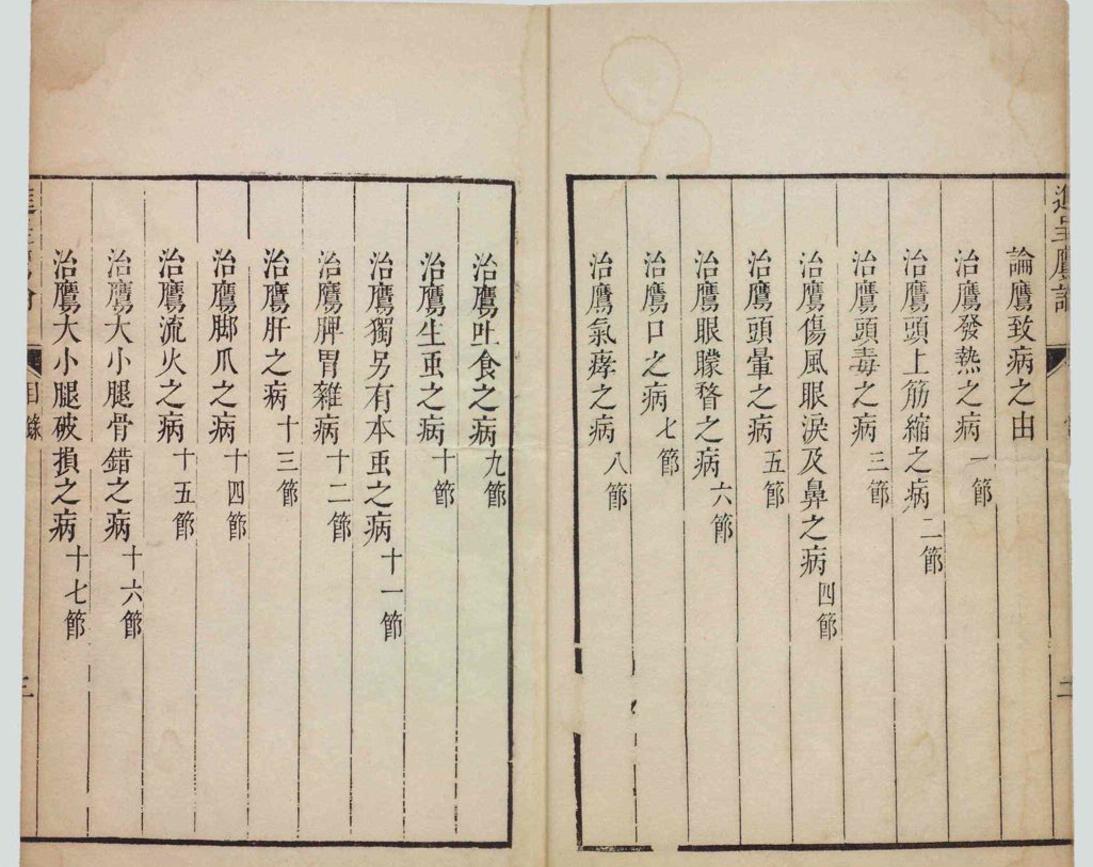 進呈鷹論
二
論鷹致病之由
治鷹發熱之病一節
治鷹頭上筋縮之病二節
治鷹頭毒之病三節
治鷹傷風眼淚及鼻之病四節
治鷹頭暈之病五節
治鷹眼矇瞀之病六節
治鷹口之病七節
治鷹氣㾱之病八節
治鷹吐食之病九節
治鷹生虫之病十節
治鷹獨另有本虫之病十一節
治鷹脾胃雜病十二節
治鷹肝之病十三節
治鷹脚爪之病十四節
治鷹流火之病十五節
治鷹大小腿骨錯之病十六節
治鷹大小腿破損之病十七節
目錄
三